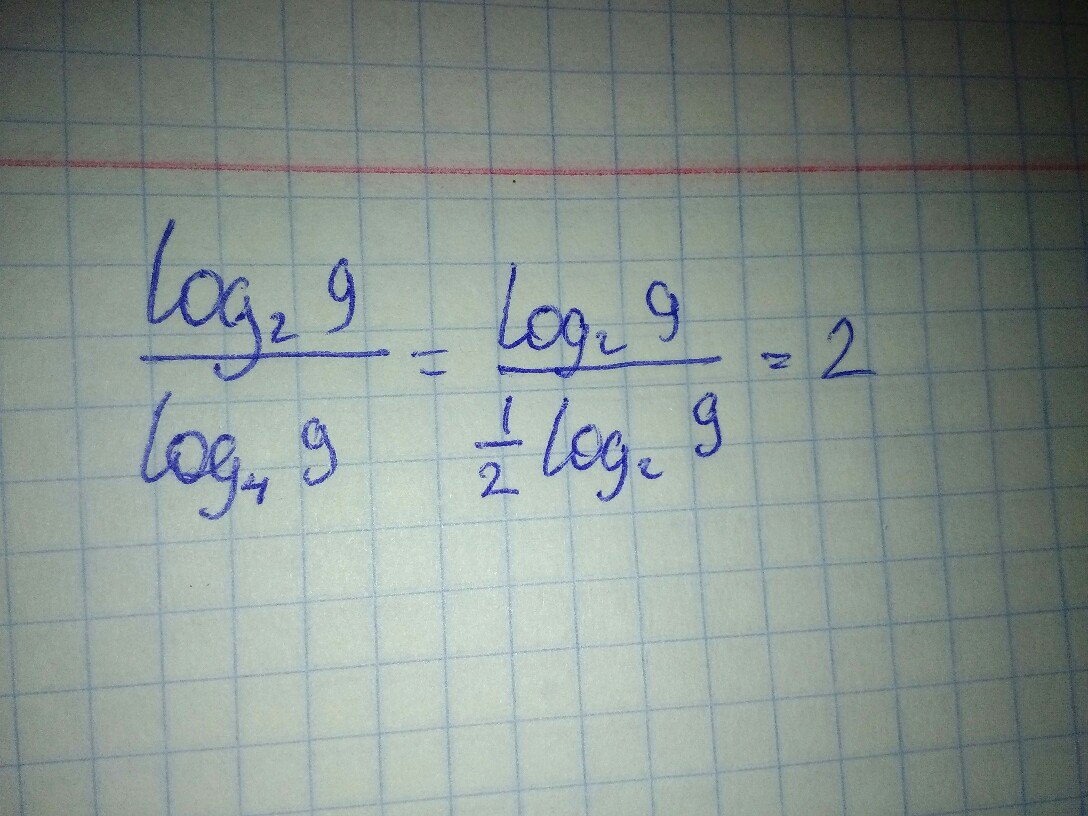 log₂ 9 / log₄ 9 = log₂ 9 / ½ log₂ 9 = 2